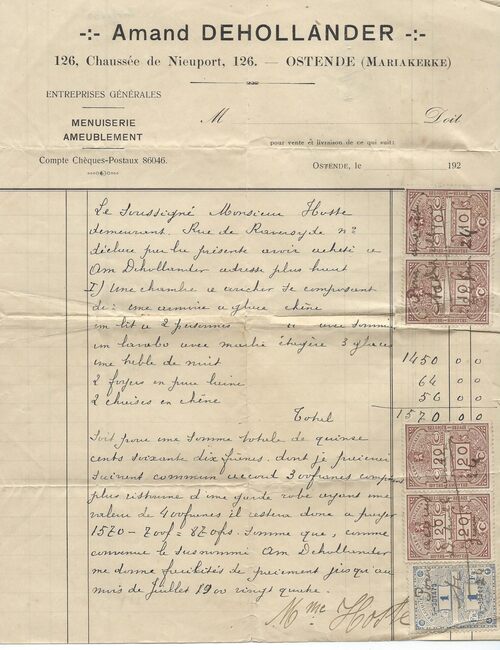 -:- Amand DEHOLLANDER -:-
126, Chaussée de Nieuport, 126. — OSTENDE (MARIAKERKE)
ENTREPRISES GÉNÉRALES
MENUISERIE
AMEUBLEMENT
Compte Chèques-Postaux 86046.
M Doit
pour vente et livraison de ce qui suit:
OSTENDE, le 192
Le Soussigné Monsieur Hoste
demeurant. Rue de Raversyde n°
déclare par la présente avoir acheté a
Am Dehollander adresse plus haut
I) Une chambre a coucher se composant
de: une armoire a glace chêne
un lit a 2 personnes " avec somm
un lavabo avec marbre étagère 3 glaces 1450 00
une table de nuit
2 foyers en pure laine 64 00
2 chaises en chêne 56 00
Total 1570 00
Soit pour une somme totale de quinse
cents soixante dix frcs. dont je paierai
suivant commun accord 300 francs comptant
plus ristourne d'une garde robe ayant une
valeur de 400 francs il restera donc a payer
1570 - 700 f = 870 frs. Somme que, comme
convenue le susnommé Am Dehollander
me donne facilités de paiement jusqu'au
mois de Juillet 1900 vingt quatre.
Mme Hoste
10 10
10 10
20 20
20 20
1 1